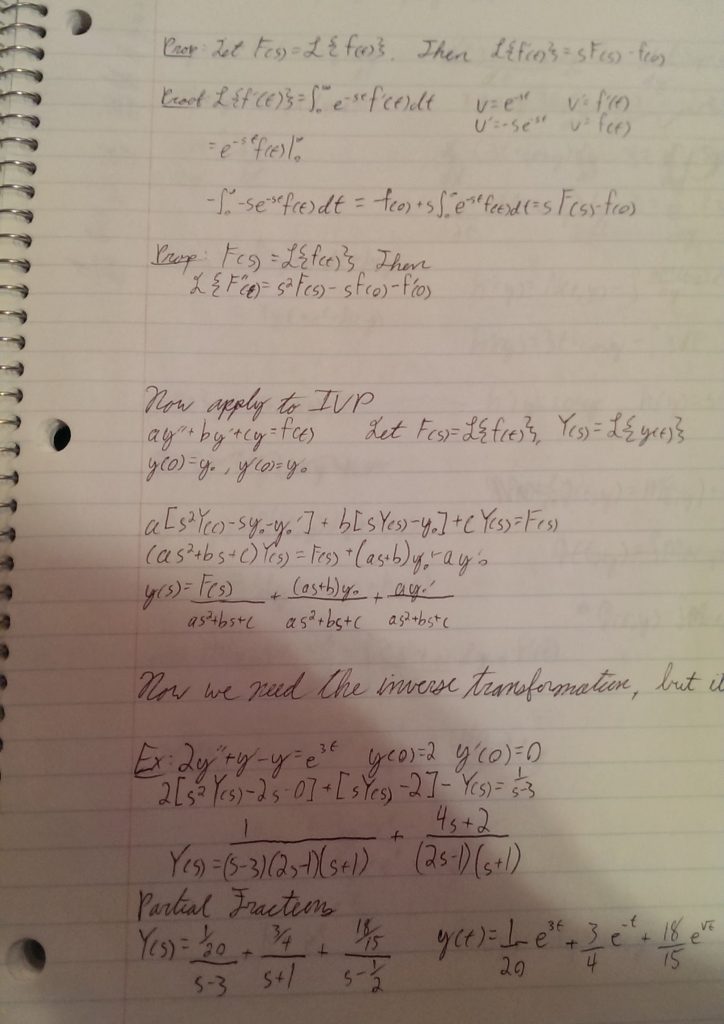 Prop: Let F(s) = ℒ{f(t)}. Then ℒ{f'(t)} = sF(s) - f(0)
Proof ℒ{f'(t)} = ∫₀^∞ e^-st f'(t) dt u = e^-st v' = f'(t)
u' = -se^-st v = f(t)
= e^-st f(t)|₀^∞
-∫₀^∞ -se^-st f(t) dt = -f(0) + s∫₀^∞ e^-st f(t) dt = s F(s) - f(0)
Prop: F(s) = ℒ{f(t)} Then
ℒ{F''(t) = s²F(s) - sf(0) - f'(0)
Now apply to IVP
ay'' + by' + cy = f(t) Let F(s) = ℒ{f(t)}, Y(s) = ℒ{y(t)}
y(0) = y₀, y'(0) = y₀
a[s²Y(s) - sy₀ - y₀'] + b[sY(s) - y₀] + cY(s) = F(s)
(as² + bs + c) Y(s) = F(s) + (as+b)y₀ - ay'₀
y(s) = F(s)/(as²+bs+c) + (as+b)y₀/(as²+bs+c) + ay₀'/(as²+bs+c)
Now we need the inverse transformation, but it
Ex: 2y'' + y' - y = e^3t y(0) = 2 y'(0) = 0
2[s²Y(s) - 2s - 0] + [sY(s) - 2] - Y(s) = 1/(s-3)
Y(s) = 1/((s-3)(2s-1)(s+1)) + (4s+2)/((2s-1)(s+1))
Partial Fractions
Y(s) = (1/20)/(s-3) + (3/4)/(s+1) + (18/15)/(s-1/2) y(t) = 1/20 e^3t + 3/4 e^-t + 18/15